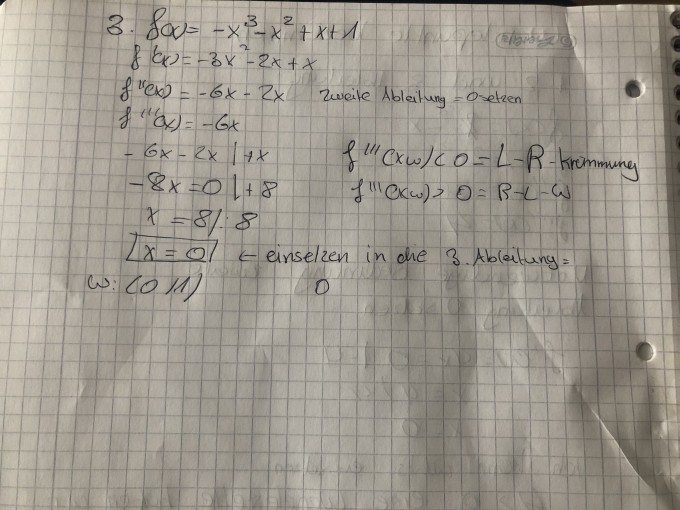 3. f(x) = -x³-x²+x+1
f'(x) = -3x²-2x+x
f''(x) = -6x-2x zweite Ableitung = 0 setzen
f'''(x) = -6x
-6x-2x |+x f'''(xw) < 0 = L-R-Krümmung
-8x = 0 |+8 f'''(xw) > 0 = R-L-W
x = 8 |: 8
x = 0 ← einsetzen in die 3. Ableitung =
W: (0|1) 0